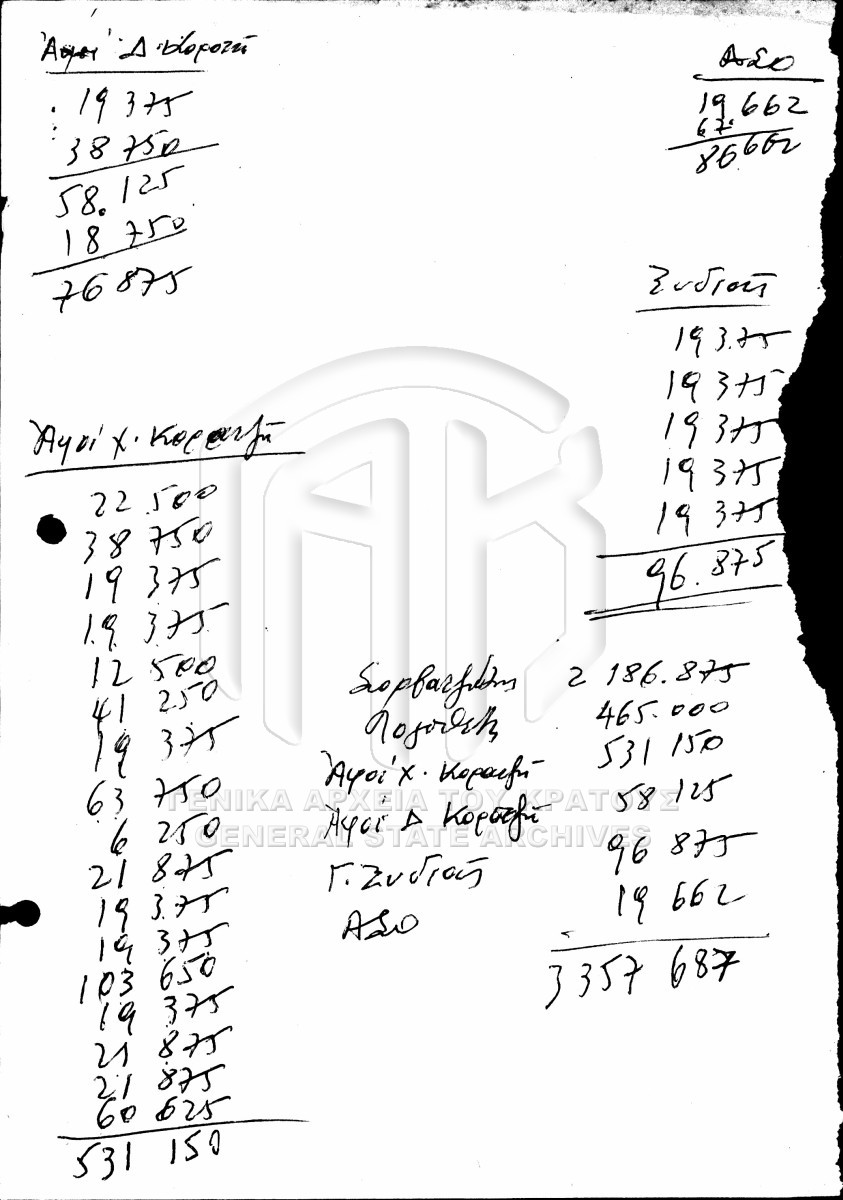 Αφοι Δ.
19 375
38 750
58.125
18 750
76 875
ΑΣΟ
19 662
67.
86662
19 375
19 375
19 375
19 375
19 375
96.875
Αφοί Χ. Κορατζή
22 500
38 750
19 375
19 375
12 500
41 250
19 375
63 750
6 250
21 875
19 375
19 375
103 650
19 375
21 875
21 875
60 625
531 150
2 186.875
465.000
Αφοί Χ. Κορατζή 531 150
Αφοί Δ Κορατζή 58 125
Γ. 96 875
ΑΣΟ 19 662
3357 687
ΓΕΝΙΚΑ ΑΡΧΕΙΑ ΤΟΥ ΚΡΑΤΟΥΣ
GENERAL STATE ARCHIVES